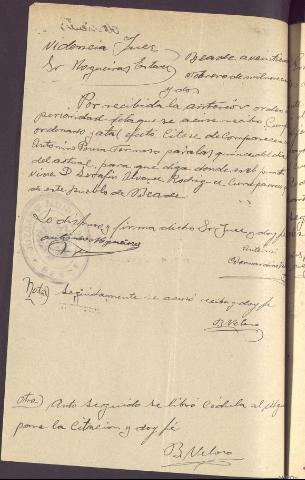 Providencia Juez
Sr Nogueiras Esteves
Beade a veintiseis
febrero de mil novecientos
y dos
Por recibida la anterior orden
perioridad de la que se acuse recibo Cum
ordenado y a tal efecto Citese de Comparecen
Antonio para las quince del dia
del actual, para que diga donde en el punto
vive D Serafin Alvarez Rodriguez, Cura parroco
de este pueblo de Beade
Lo dispuso y firma dicho Sr Juez y doy fe
Antonio Nogueiras
Nota) Seguidamente se acusó recibo y doy fe
B. Veloso
Otra) Acto seguido se libró Cédula al Algu
para la citacion y doy fé
B. Veloso